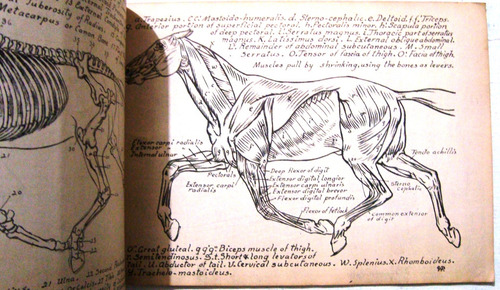 Tuberosity of Radius.
Metacarpus or Canno
a. Trapezius. C.C.' Mastoido-humeralis. d. Sterno-cephalic. e. Deltoid. f.f. Triceps.
g. Anterior portion of superficial pectoral. h. Pectoralis minor. h. Scapula portion
of deep pectoral. L. Serratus magnus. L. Thorgcic part of serratus
magnus. K. Latissimus dorsi. L. External oblique abdominal.
L'. Remainder of abdominal subcutaneous. M. Small
Serratus. O. Tensor of fascia of thigh. O'. Facia of thigh.
Muscles pull by shrinking, using the bones as levers.
Flexor carpi radialis
Extensor
Internal ulnar
Pectoralis
Extensor carpi
radialis
Deep flexor of digit
Extensor digital longior
Extensor carpi ulnaris
Extensor digital brevor
Flexor digital profundis
Flexor of fetlock
Tendo achillis
Sterno
cephalic
common extensor
of digit
Great gluteal. q.q'q". Biceps muscle of thigh.
r. Semitendinosus. S.t. Short & long levators of
tail. U. Abductor of tail. V. Cervical subcutaneous. W. Splenius. X. Rhomboideus.
y. Trachelo-mastoideus.
31. Ulna.